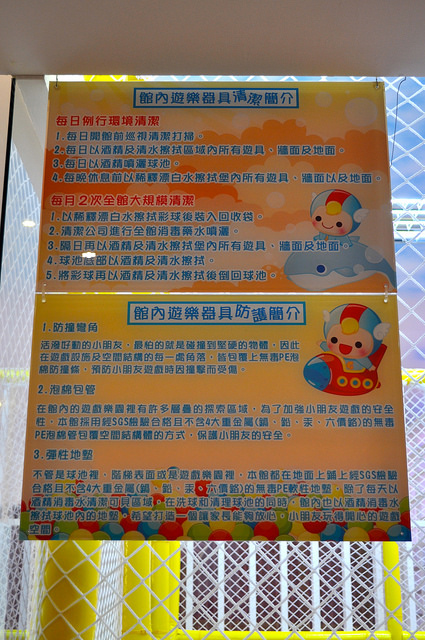 館內遊樂器具清潔簡介
每日例行環境清潔
1.每日開館前巡視清潔打掃。
2.每日以酒精及清水擦拭區域內所有遊具、牆面及地面。
3.每日以酒精噴灑球池。
4.每晚休息前以稀釋漂白水擦拭堡內所有遊具、牆面以及地面。
每月2次全館大規模清潔
1.以稀釋漂白水擦拭彩球後裝入回收袋。
2.清潔公司進行全館消毒藥水噴灑。
3.隔日再以酒精及清水擦拭堡內所有遊具、牆面及地面。
4.球池底部以酒精及清水擦拭。
5.將彩球再以酒精及清水擦拭後倒回球池。
館內遊樂器具防護簡介
1.防撞彎角
活潑好動的小朋友，最怕的就是碰撞到堅硬的物體，因此
在遊戲設施及空間結構的每一處角落，皆包覆上無毒PE泡
綿防撞條，預防小朋友遊戲時因撞擊而受傷。
2.泡綿包管
在館內的遊戲樂園裡有許多層疊的探索區域，為了加強小朋友遊戲的安全
性，本館採用經SGS檢驗合格且不含4大重金屬(鎘、鉛、汞、六價鉻)的無毒
PE泡綿管包覆空間結構體的方式，保護小朋友的安全。
3.彈性地墊
不管是球池裡、階梯表面或是遊戲樂園裡，本館都在地面上鋪上經SGS檢驗
合格且不含4大重金屬(鎘、鉛、汞、六價鉻)的無毒PE軟性地墊，除了每天以
酒精消毒水清潔可見區域，在洗球和清理球池的同時，館內也以酒精消毒水
擦拭球池內的地墊，希望打造一個讓家長能夠放心，小朋友玩得開心的遊戲
空間。